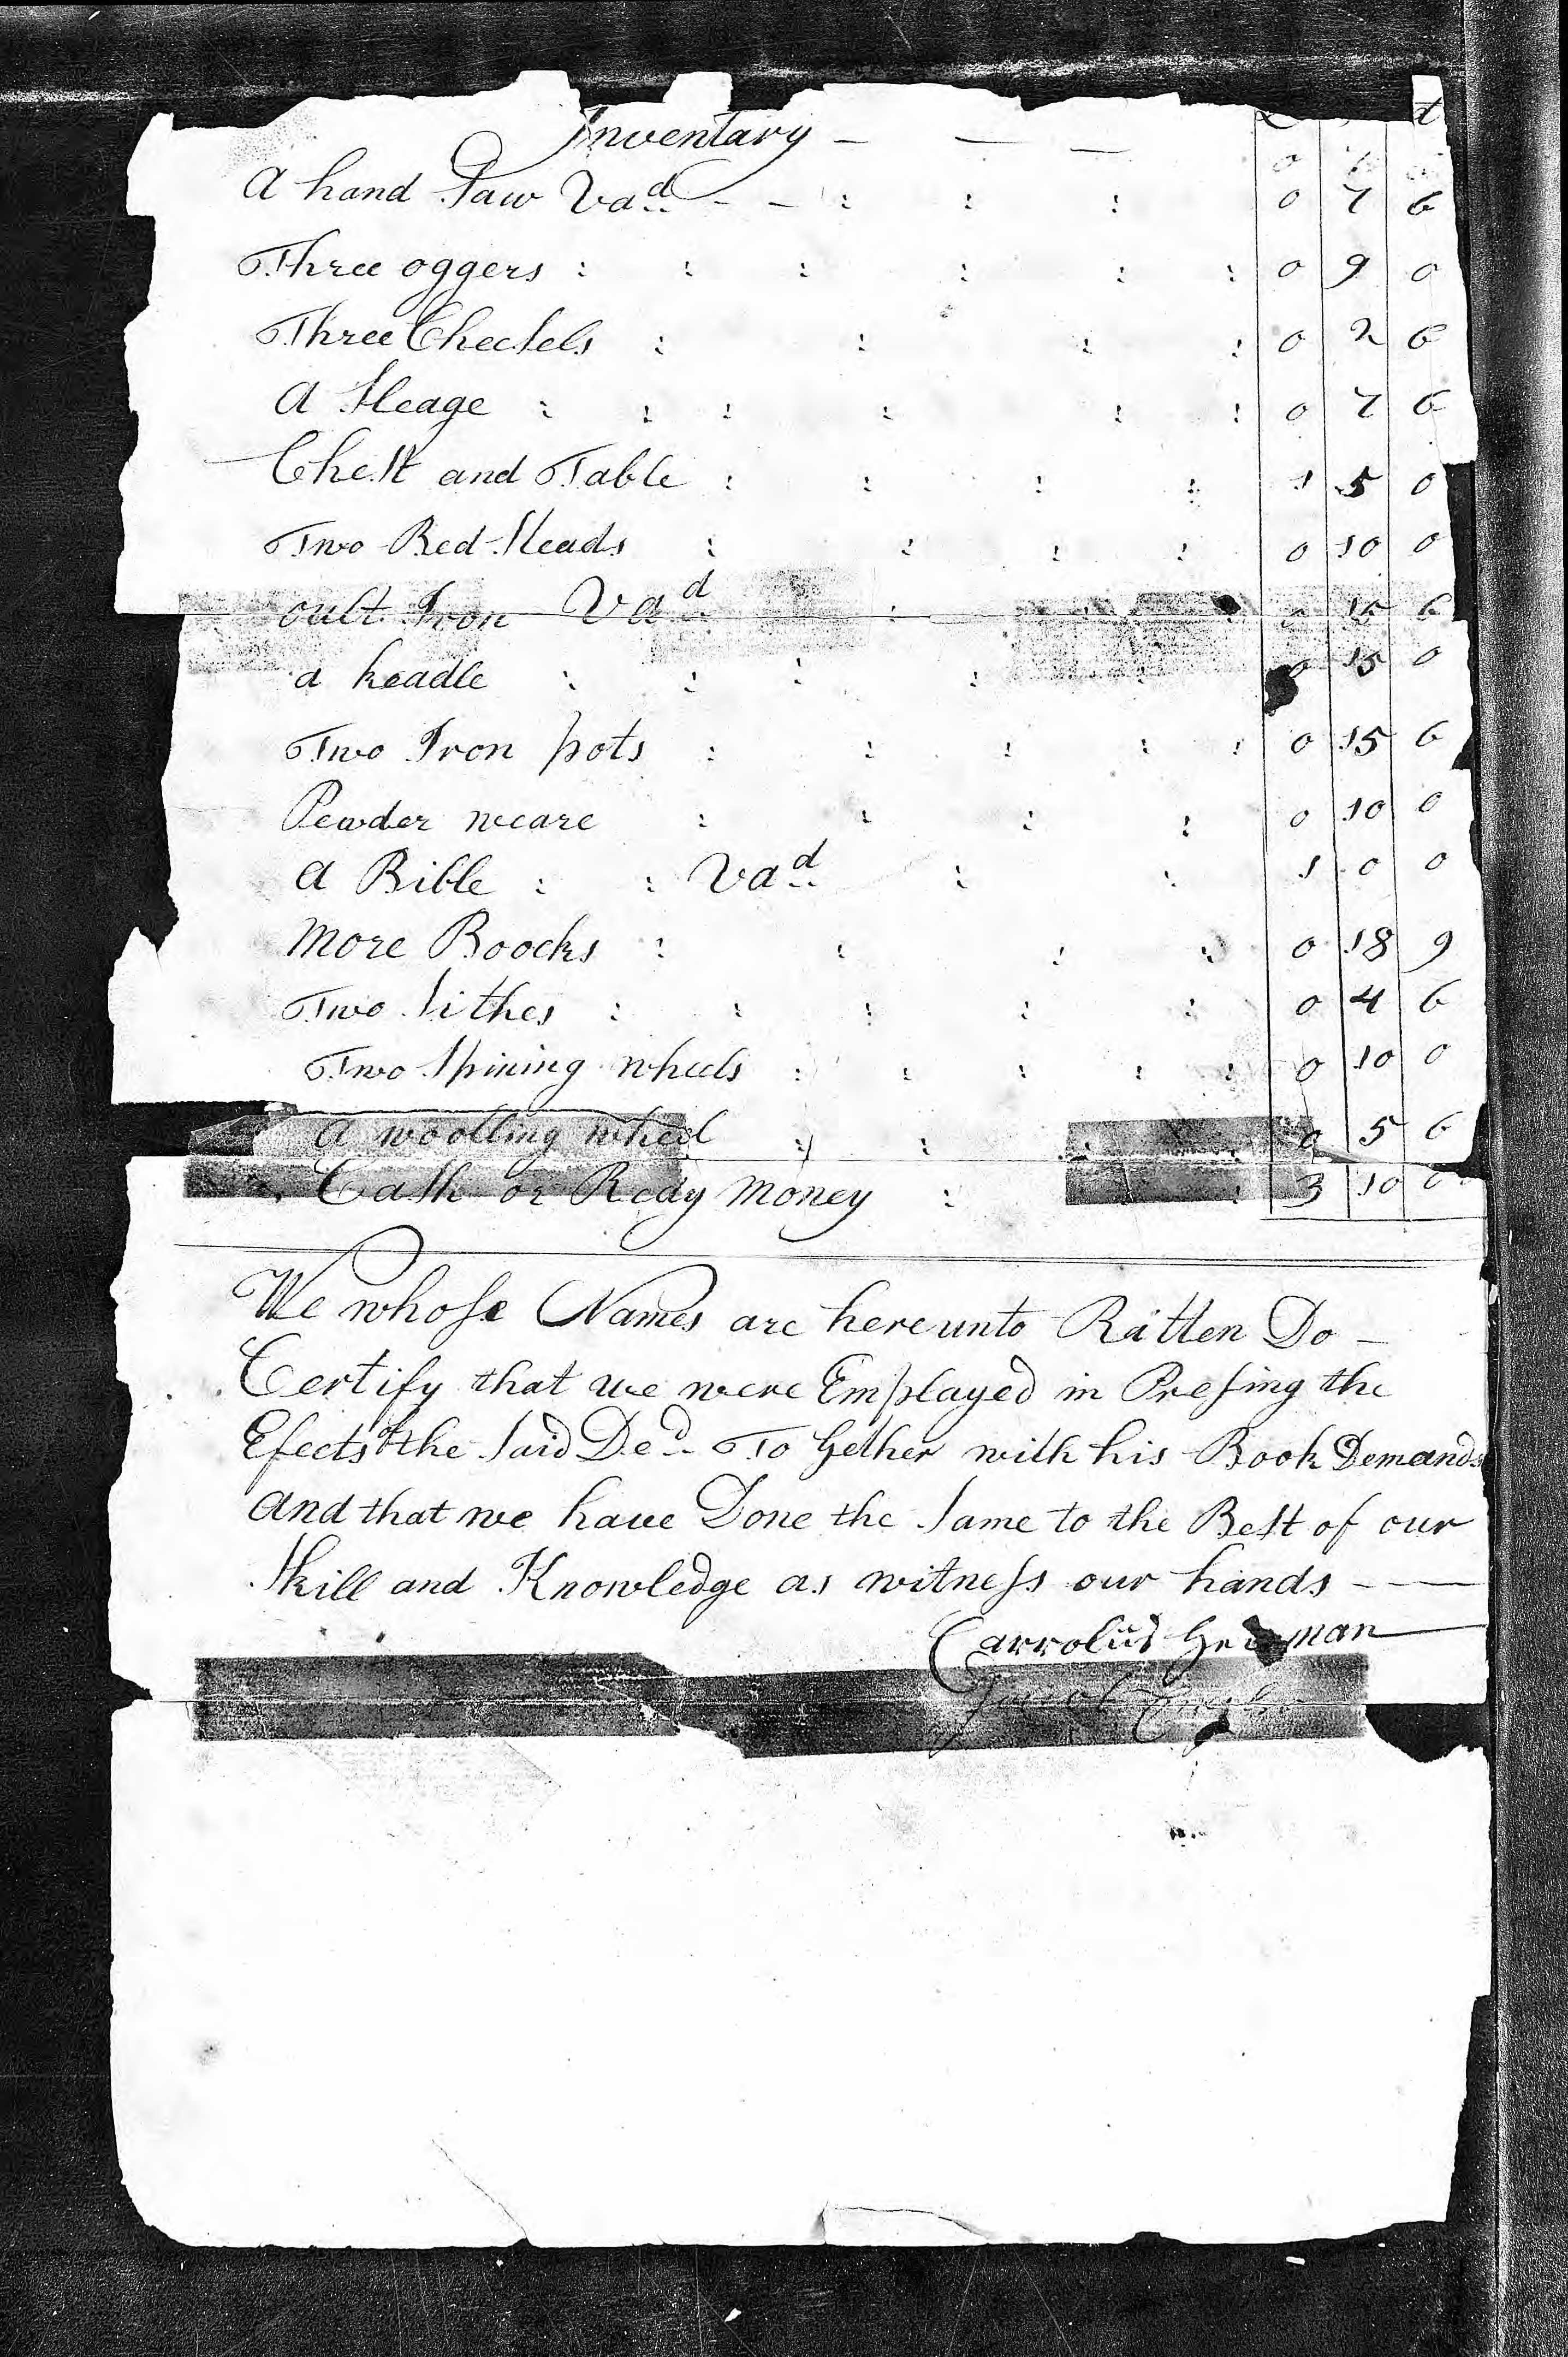 Inventary — — —
A hand Saw Vad 0 7 6
Three oggers 0 9 0
Three Chessels 0 2 6
A Sleage 0 7 6
Chest and Table 1 5 0
Two Bed Steads 0 10 0
oult Iron Vad 0 15 6
a keadle 0 15 0
Two Iron pots 0 15 6
Pewder weare 0 10 0
A Bible Vad 1 0 0
More Boocks 0 18 9
Two Sithes 0 4 6
Two Spining wheels 0 10 0
A woolling wheel 0 5 6
Cash or Redy Money 3 10 0
We whose Names are here unto Ritten Do —
Certify that we were Employed in Presing the
Efects of the Said Decd To Gether with his Book Demands
and that we have Done the Same to the Best of our
Skill and Knowledge as witness our hands — —
Carrolus
Jacob